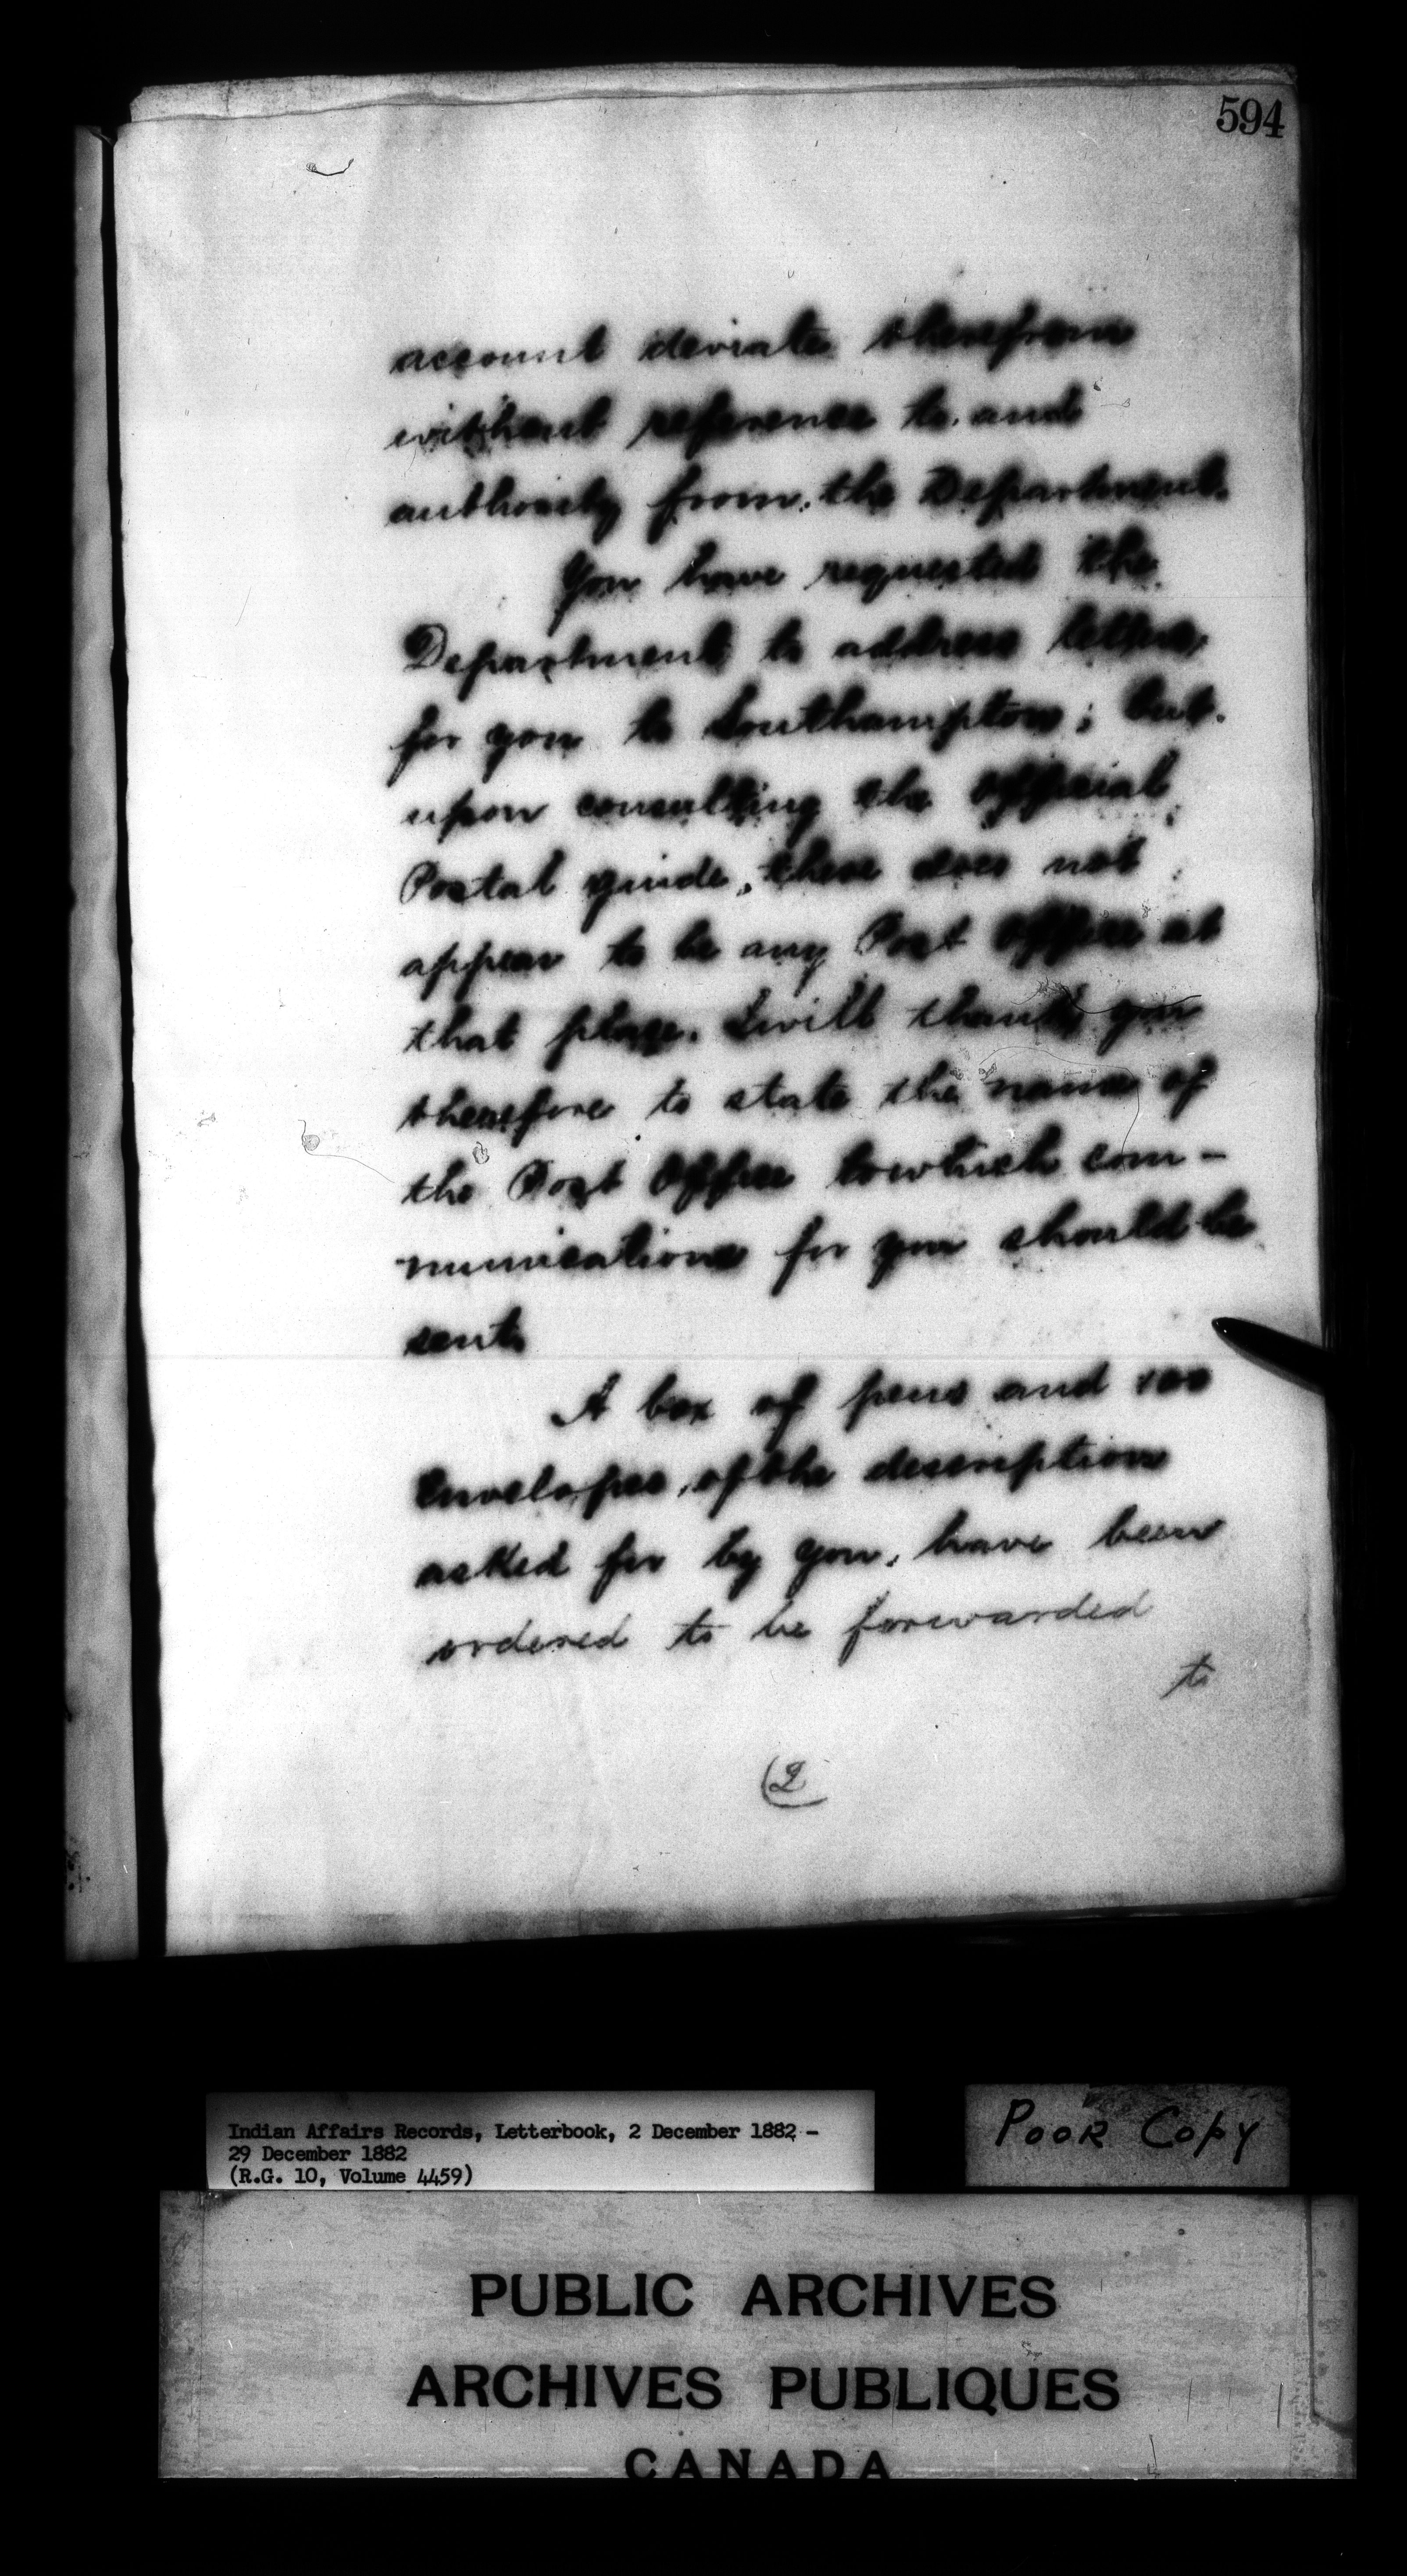 594
account deviate therefrom
without reference to and
authority from the Department.
You have requested the
Department to address letters
for you to Southampton; but
upon consulting the Official
Postal guide, there does not
appear to be any Post Office at
that place. I will thank you
therefore to state the name of
the Post Office to which com-
munications for you should be
sent.
A box of pens and 100
Envelopes, of the description
asked for by you, have been
ordered to be forwarded
to
(2
Indian Affairs Records, Letterbook, 2 December 1882 -
29 December 1882
(R.G. 10, Volume 4459)
POOR COPY
PUBLIC ARCHIVES
ARCHIVES PUBLIQUES
CANADA